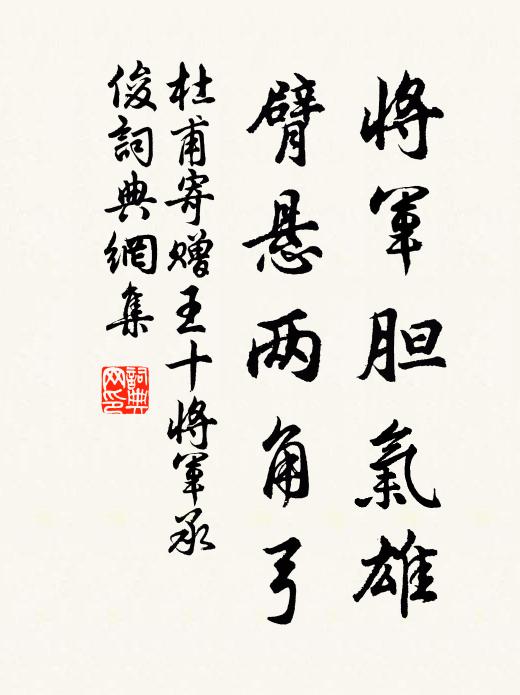 將軍胆氣雄
臂悬两角弓
杜甫寄赠王十將軍承
俊詞典網集
詞典
网印